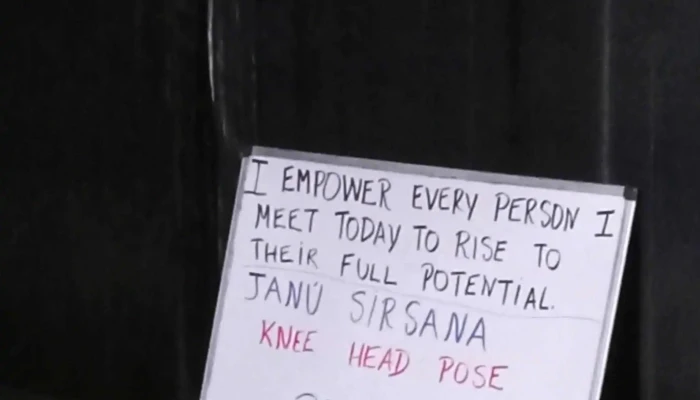 I EMPOWER EVERY PERSON I
MEET TODAY TO RISE TO
THEiR FULL POTENTIAL.
JANÚ SIRSANA
KNEE HEAD POSE